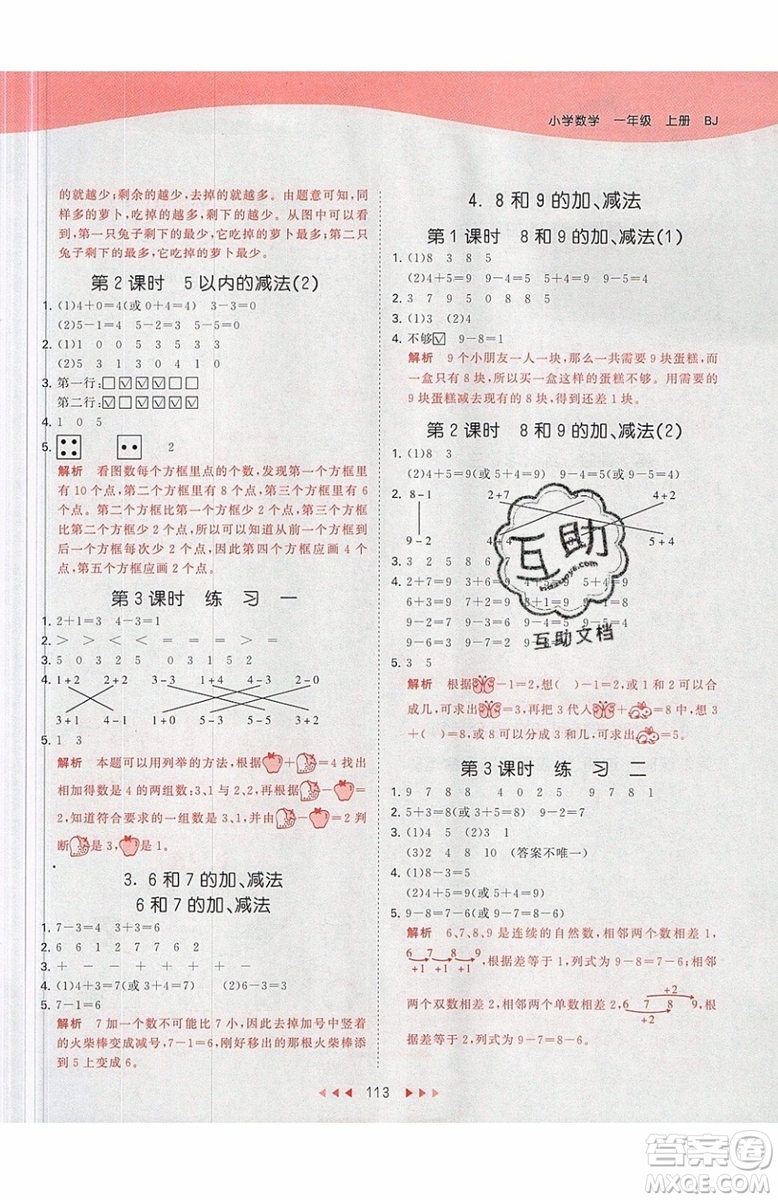 小学数学 一年级 上册 BJ
的就越少；剩余的越少，去掉的就越多。由题意可知，
同样多的萝卜，吃掉的越少，剩下的越多。从图中可以看
出，第一只兔子剩下的最少，它吃掉的萝卜最多；第二只
兔子剩下的最多，它吃掉的萝卜最少。
第2课时 5以内的减法(2)
1. (1)4+0=4(或0+4=4) 3-3=0
(2)5-1=4 5-2=3 5-5=0
2. (1)1 0 0 5 3 5
(2)5 3 1 3 0 4 1 0
3. 第一行：□☑☑☑☑☑
第二行：☑☑☑☑☑☑
4. 1 0 5
5. 2
解析 看图数每个方框里点的个数，发现第一个方框里
有10个点，第二个方框里有8个点，第三个方框里有6
个点，第二个方框比第一个方框少2个点，第三个方框
比第二个方框少2个点，以此类推，从第二个方框开始，
每个方框比前一个方框每次少2个点，因此第四个方框画4个点，
第五个方框应画2个点。
第3课时 练习一
1. 2+1=3 4-3=1
2. > > < < = = < =
3. 5 0 3 2 5 0 3 1 5 2
4. 1+2 2+2 0+2 1+0 4-4
3+1 4-1 0+1 5-3 5-5
5. 1 3
解析 本题可以用列举的方法，根据+=4找出
相加得数是4的两组数：3、1与2、2；再根据-=
2，知道符合要求的一组数是3、1；最后由-=2判
断是3，是1。
3. 6和7的加、减法
6和7的加、减法
1. 7-3=4 7-1=6
2. 6 1 6 2 7 7 6 7
3. + - + - - +
4. (1)4+3=7(或3+4=7) (2)6-3=3
5. 7-1=6
解析 7加一个数不可能比7小，因此去掉加号中竖着
的火柴棒变成减号，7-1=6，刚好移出的那根火柴棒添
到5上变成6。
4. 8和9的加、减法
第1课时 8和9的加、减法(1)
1. (1)8 3 8 5
(2)4+5=9 9-4=5 9-5=4
2. 3 7 9 5 0 8 8 5
3. (1)3 (2)4
4. 不够☑ 9-8=1
解析 9个小朋友一人一块，那么一共需要9块蛋糕，而
一盒只有8块，所以买一盒这样的蛋糕不够。用需要的
9块蛋糕减去现在有的8块蛋糕，得到还差1块。
第2课时 8和9的加、减法(2)
1. (1)8 3
(2)4+5=9(或5+4=9) 9-5=4(或9-4=5)
2. 8-1 2+4 7+2 4+2
9-2 5+4
3. 3 2 5 8 8 6
4. 2+7=9 3+6=9 4+5=9 5+4=9
6+3=9 7+2=9 9-2=7 9-3=6
9-4=5 9-5=4 9-6=3 9-7=2
5. 3 5
解析 根据-1=2，想( )-1=2或1和2可以合
成几，可求出=3，再把3代入+2=，想
3+2=( )或3和2可以合成几，可求出=5。
第3课时 练习二
1. 9 7 8 8 4 0 2 5 9 7 8 1
2. 5+3=8(或3+5=8) 9-2=7
3. (1)4 5 (2)3 1
(3)2 4 8 10 (答案不唯一)
4. (1)8-3=5
(2)4+5=9(或5+4=9)
5. 9-8=7-6(或8-6=9-7)
解析 6、7、8、9是连续的自然数，相邻两个数相差1，
6 7 8 9
+1 +1 +1
，列式为9-8=7-6；6和8是相邻
两个双数相差2，相邻两个单数也相差2，
+2
6 7 8 9
+2
，列式为9-7=8-6。
113
互助
huzuoye.com
互助文档
答案圈
MXQE.COM